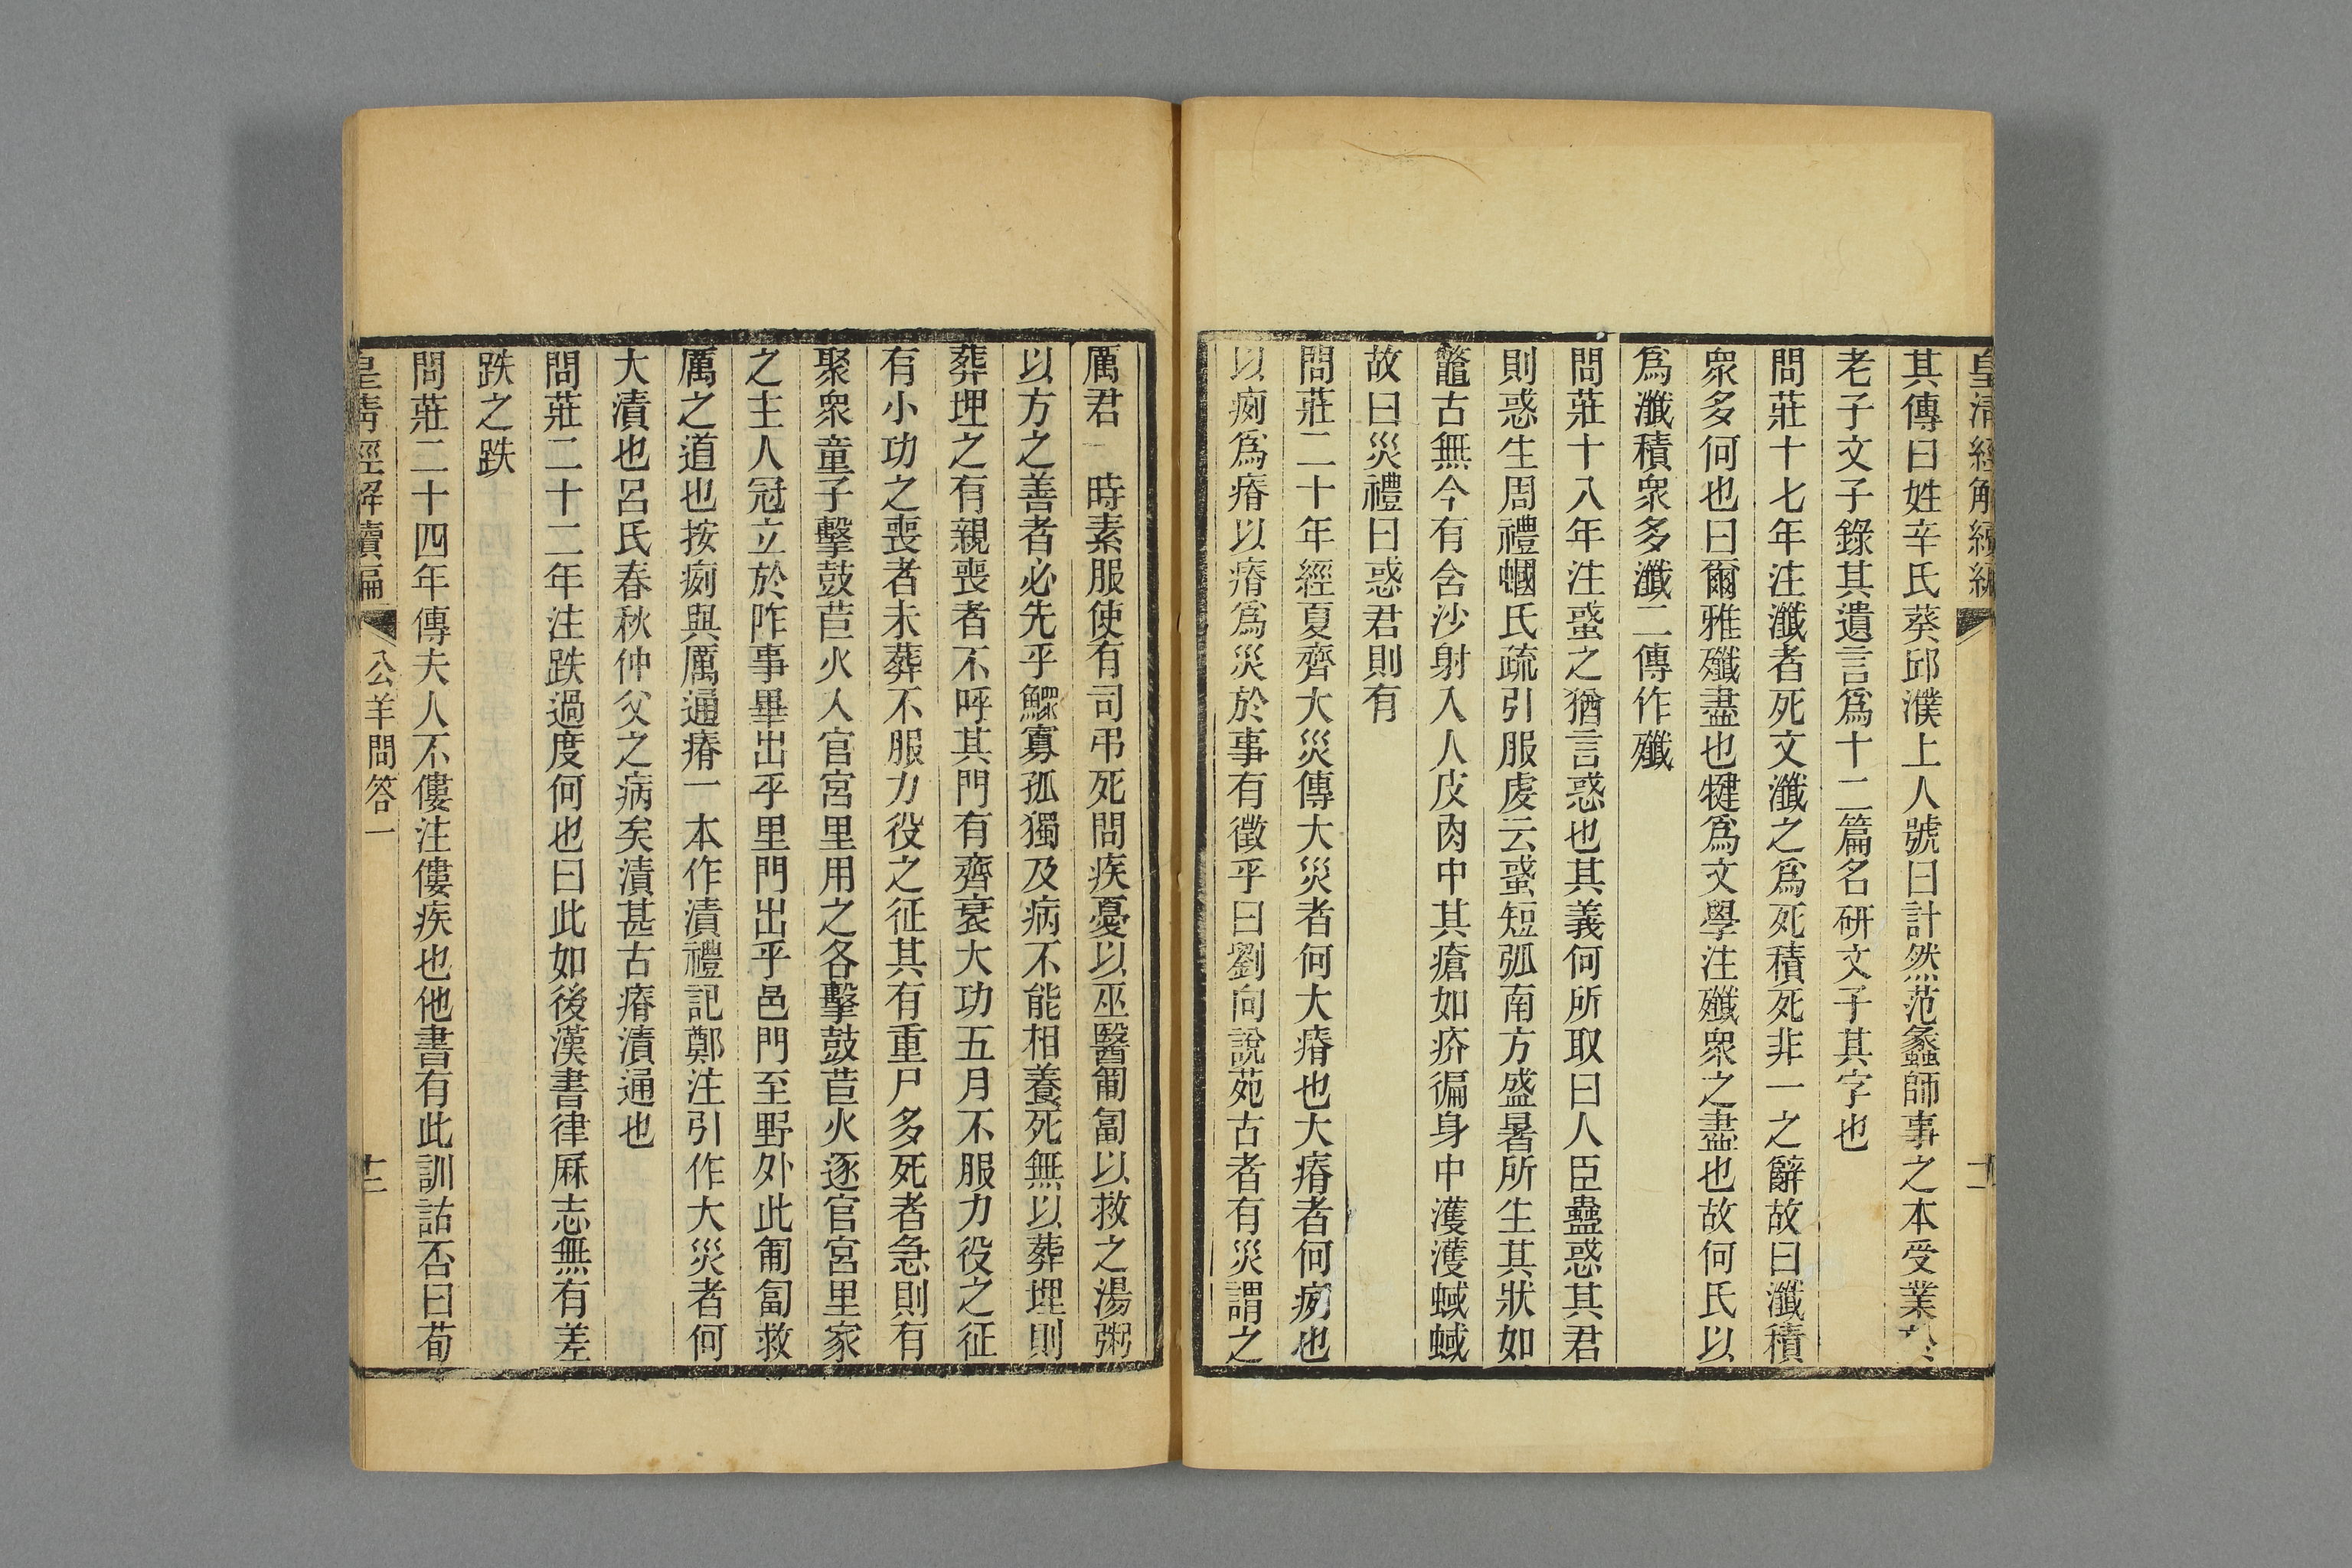 皇清經解續編
其傳曰姓辛氏葵邱濮上人號曰計然范蠡師事之本受業於
老子文子錄其遺言爲十二篇名研文子其字也
問莊十七年注瀸者死文瀸之爲死積死非一之辭故曰瀸積
衆多何也曰爾雅殲盡也犍爲文學注殲衆之盡也故何氏以
爲瀸積衆多瀸二傳作殲
問莊十八年注蜮之猶言惑也其義何所取曰人臣蠱惑其君
則惑生周禮蟈氏疏引服虔云蜮短弧南方盛暑所生其狀如
鼈古無今有含沙射入人皮肉中其瘡如疥徧身中濩濩蜮蜮
故曰災禮曰惑君則有
問莊二十年經夏齊大災傳大災者何大瘠也大瘠者何㾐也
以㾐爲瘠以瘠爲災於事有徵乎曰劉向說苑古者有災謂之
厲君一時素服使有司弔死問疾憂以巫醫匍匐以救之湯粥
以方之善者必先乎鰥寡孤獨及病不能相養死無以葬埋則
葬埋之有親喪者不呼其門有齊衰大功五月不服力役之征
有小功之喪者未葬不服力役之征其有重尸多死者急則有
聚衆童子擊鼓苣火入官宮里用之各擊鼓苣火逐官宮里家
之主人冠立於阼事畢出乎里門出乎邑門至野外此匍匐救
厲之道也按㾐與厲通瘠一本作漬禮記鄭注引作大災者何
大漬也呂氏春秋仲父之病矣漬甚古瘠漬通也
問莊二十二年注跌過度何也曰此如後漢書律厤志無有差
跌之跌
問莊二十四年傳夫人不僂注僂疾也他書有此訓詁否曰荀
皇清經解續編 公羊問答一 十二